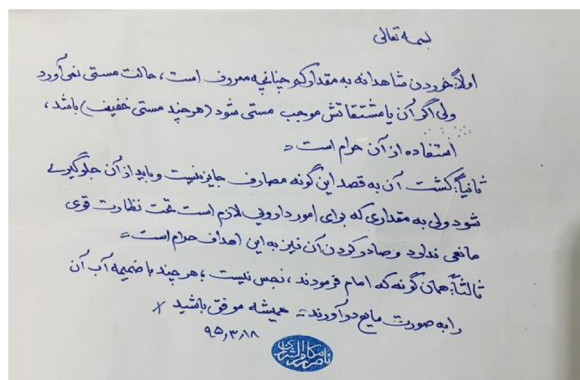 بسمه تعالی
اولاً: خوردن شاهدانه به مقدار کم چنانچه معروف است، حالت مستی نمی‌آورد
ولی اگر آن یا مشتقاتش موجب مستی شود (هرچند مستی خفیف) باشد،
استفاده از آن حرام است.
ثانیاً: کشت آن به قصد این گونه مصارف جایز نیست و باید از آن جلوگیری
شود ولی به مقداری که برای امور دارویی لازم است تحت نظارت قوی
مانعی ندارد و صادر کردن آن نیز به این اهداف حرام است.
ثالثاً: همان گونه که امام فرمودند، نجس نیست؛ هرچند با ضمیمه آب آن
را به صورت مایع درآورند. همیشه موفق باشید
۹۵٫۳٫۱۸
ناصر مکارم الشیرازی